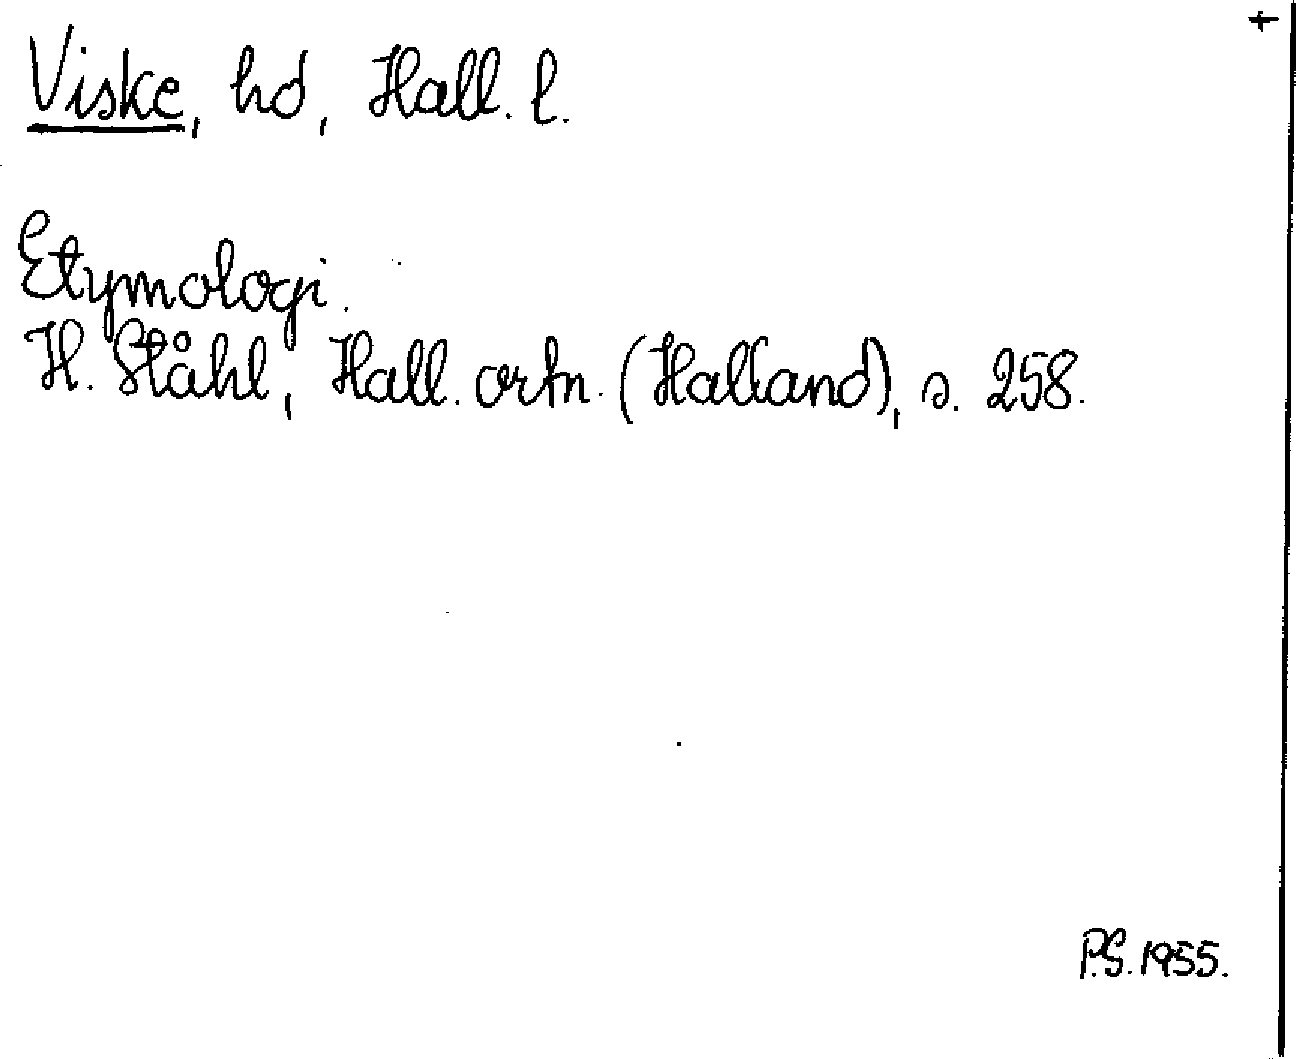 +
Viske, hd, Hall. l.
Etymologi.
H. Ståhl, Hall. ortn. (Halland), s. 258.
P.S. 1955.